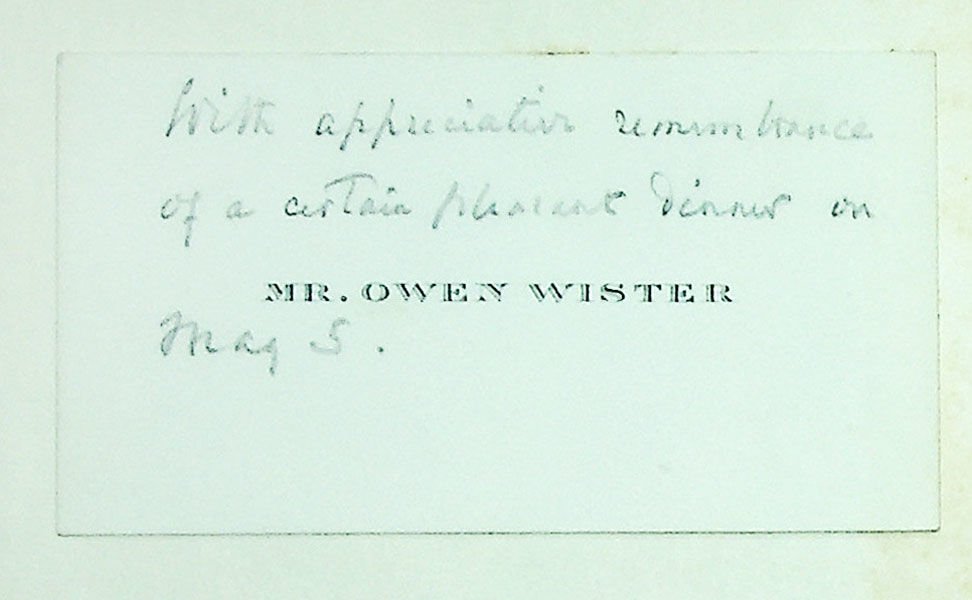 With appreciative remembrance
of a certain pleasant dinner on
MR. OWEN WISTER
May 5.